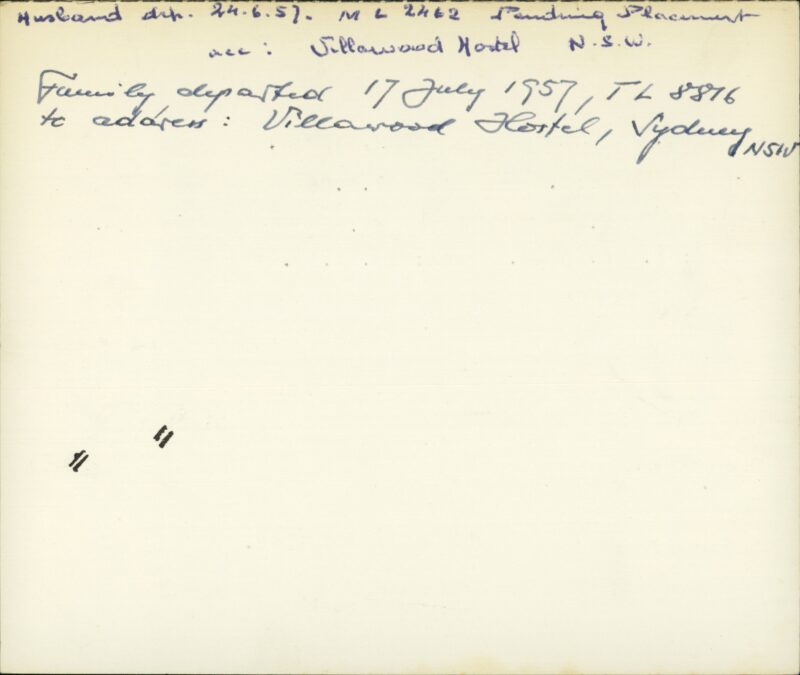 Husband dep. 24.6.57. M L 2462 Pending Placement
acc: Villawood Hostel N.S.W.
Family departed 17 July 1957, TL 8816
to address: Villawood Hostel, Sydney
NSW